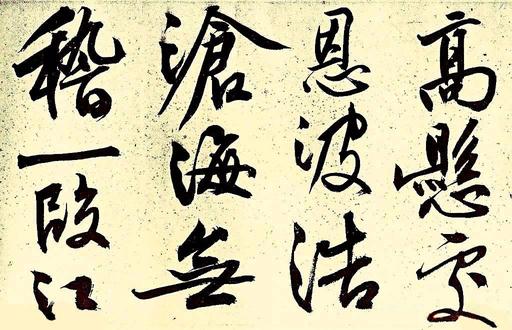 高懸處
恩波浩
滄海無
稽一段江